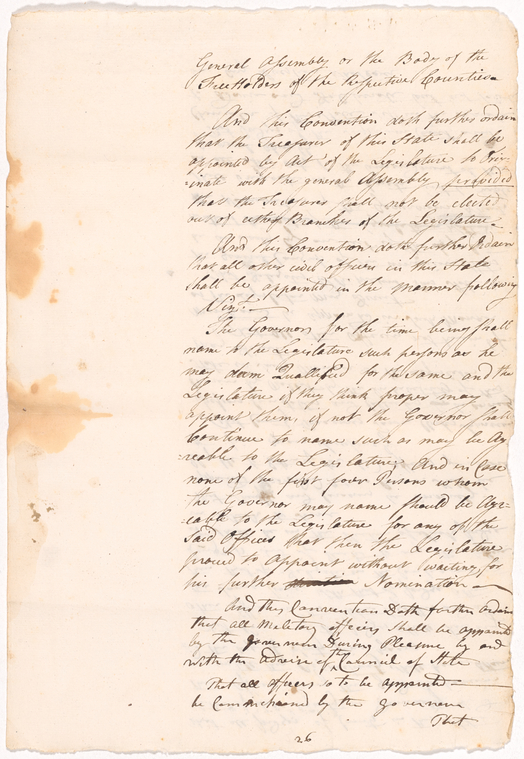 General Assembly or the Body of the
FreeHolders of the Respective Counties
And this Convention doth further ordain
that the Treasurer of this State shall be
appointed by Act of the Legislature to Ori-
-ginate with the general Assembly provided
that the Treasurer shall not be elected
out of either Branches of the Legislature
And this Convention doth further Ordain
that all other civil officers in this State
shall be appointed in the manner following
Vizt.
The Governor for the time being shall
name to the Legislature such persons as he
may deem Quallified for the same and the
Legislature if they think proper may
appoint them, if not the Governor shall
Continue to name such as may be Ag-
-reable to the Legislature, And in Case
none of the first four Persons whom
the Governor may name should be Agre-
-eable to the Legislature for any of the
said Offices that then the Legislature
proceed to Appoint without waiting for
his further Nomination
And this Convention Doth further ordain
that all Military officers shall be appointed
by the governor During Pleasure by and
with the advice of the Council of State
That all officers so to be appointed
be Commissioned by the governor
That
26